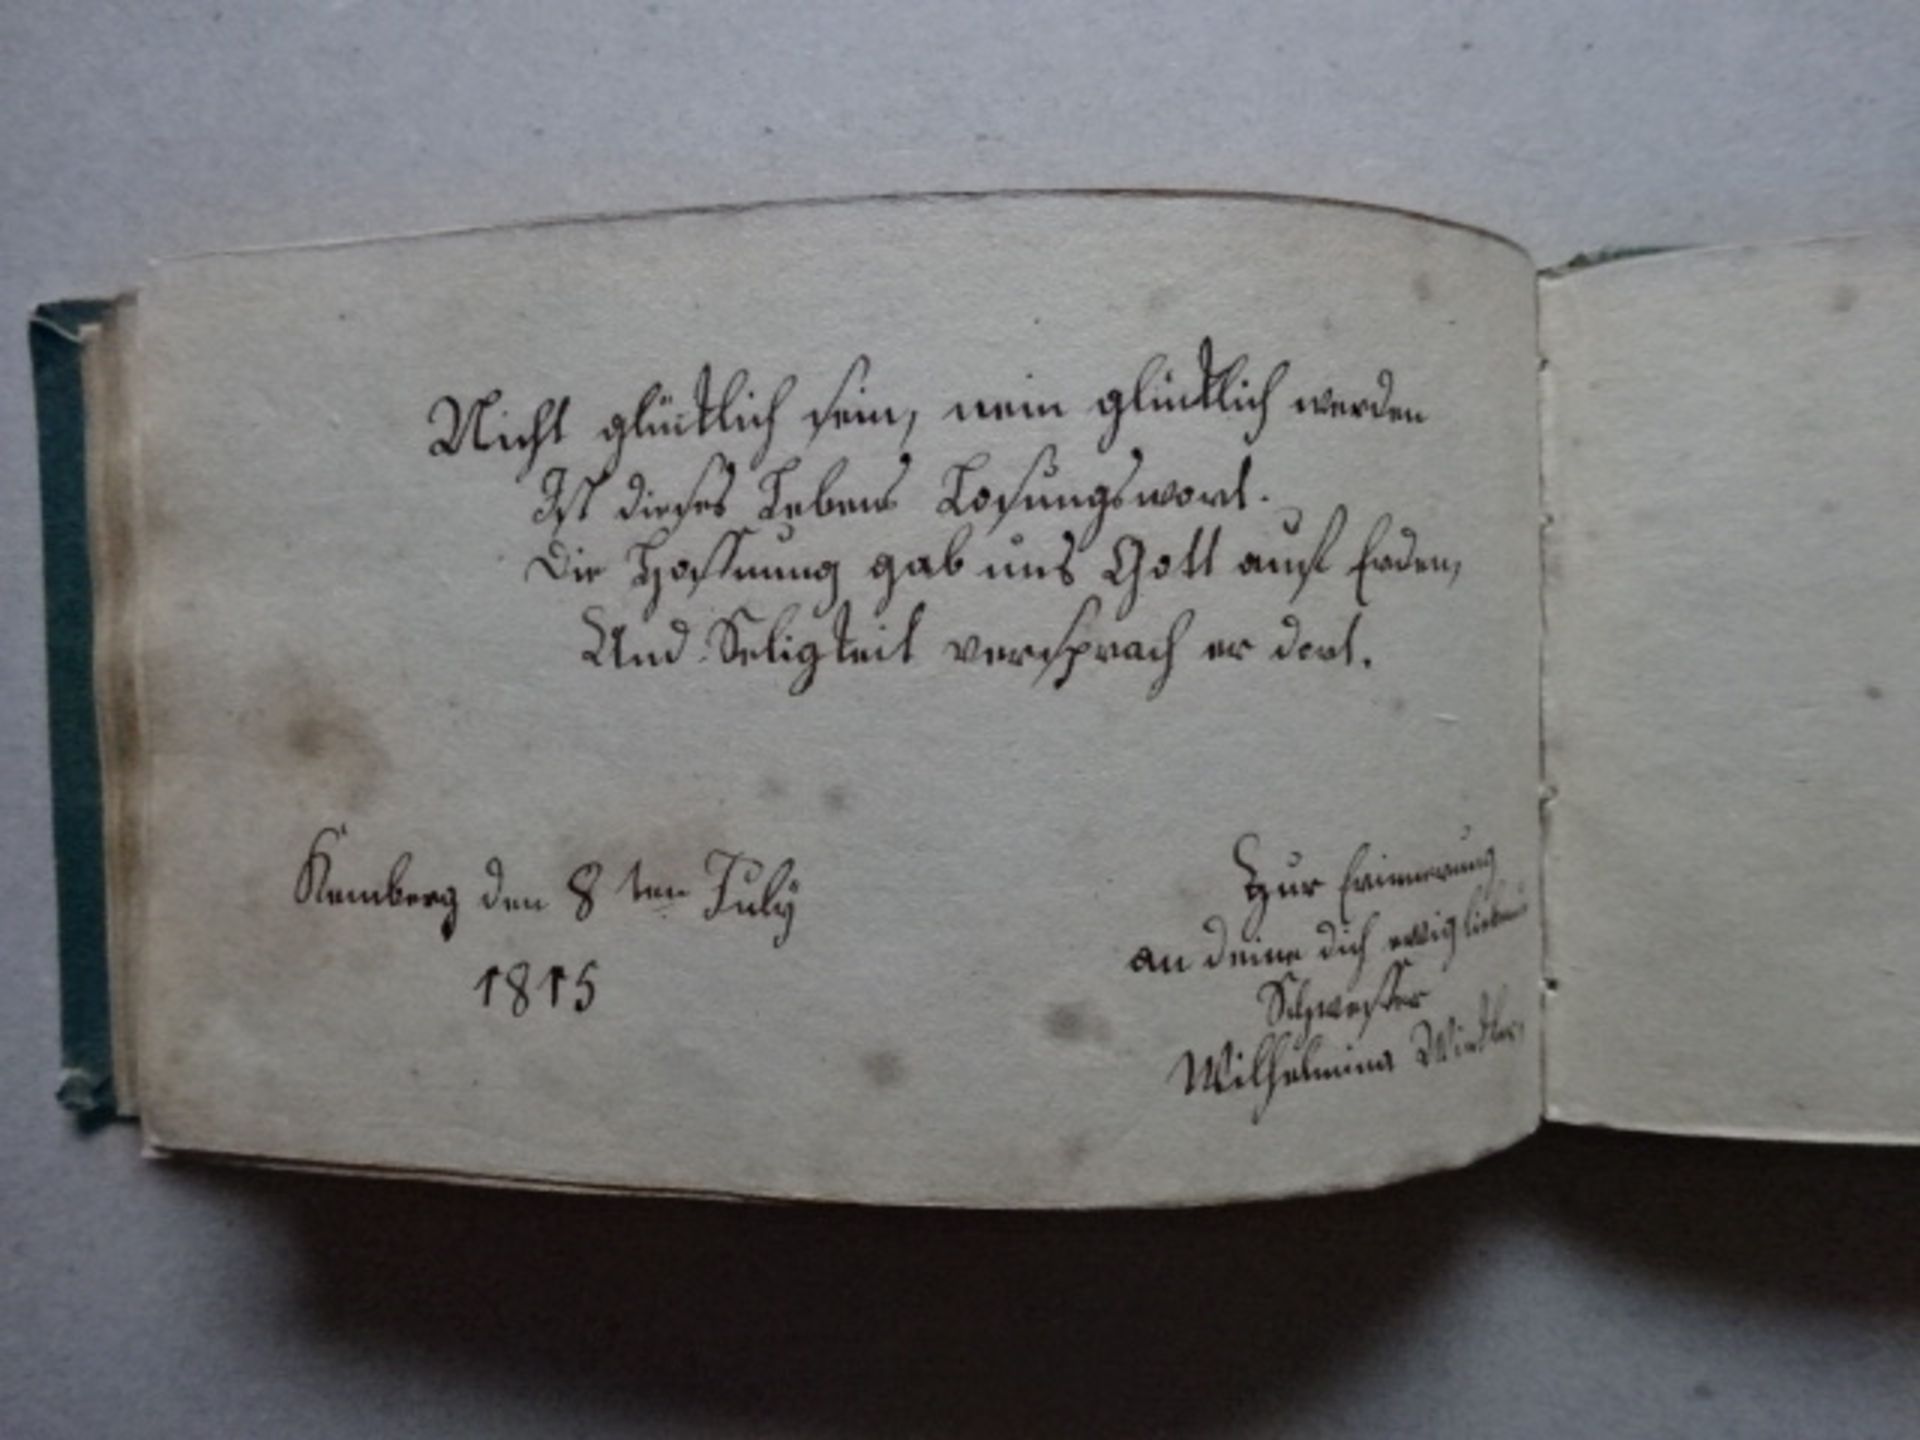 Nicht glücklich sein, nein glücklich werden
Ist dieses Lebens Losungswort.
Die Hoffnung gab uns Gott auf Erden,
Und Seligkeit versprach er dort.
Kemberg den 8 ten July
1815
Zur Erinnerung
an deine dich ewig
Schwester
Wilhelmina